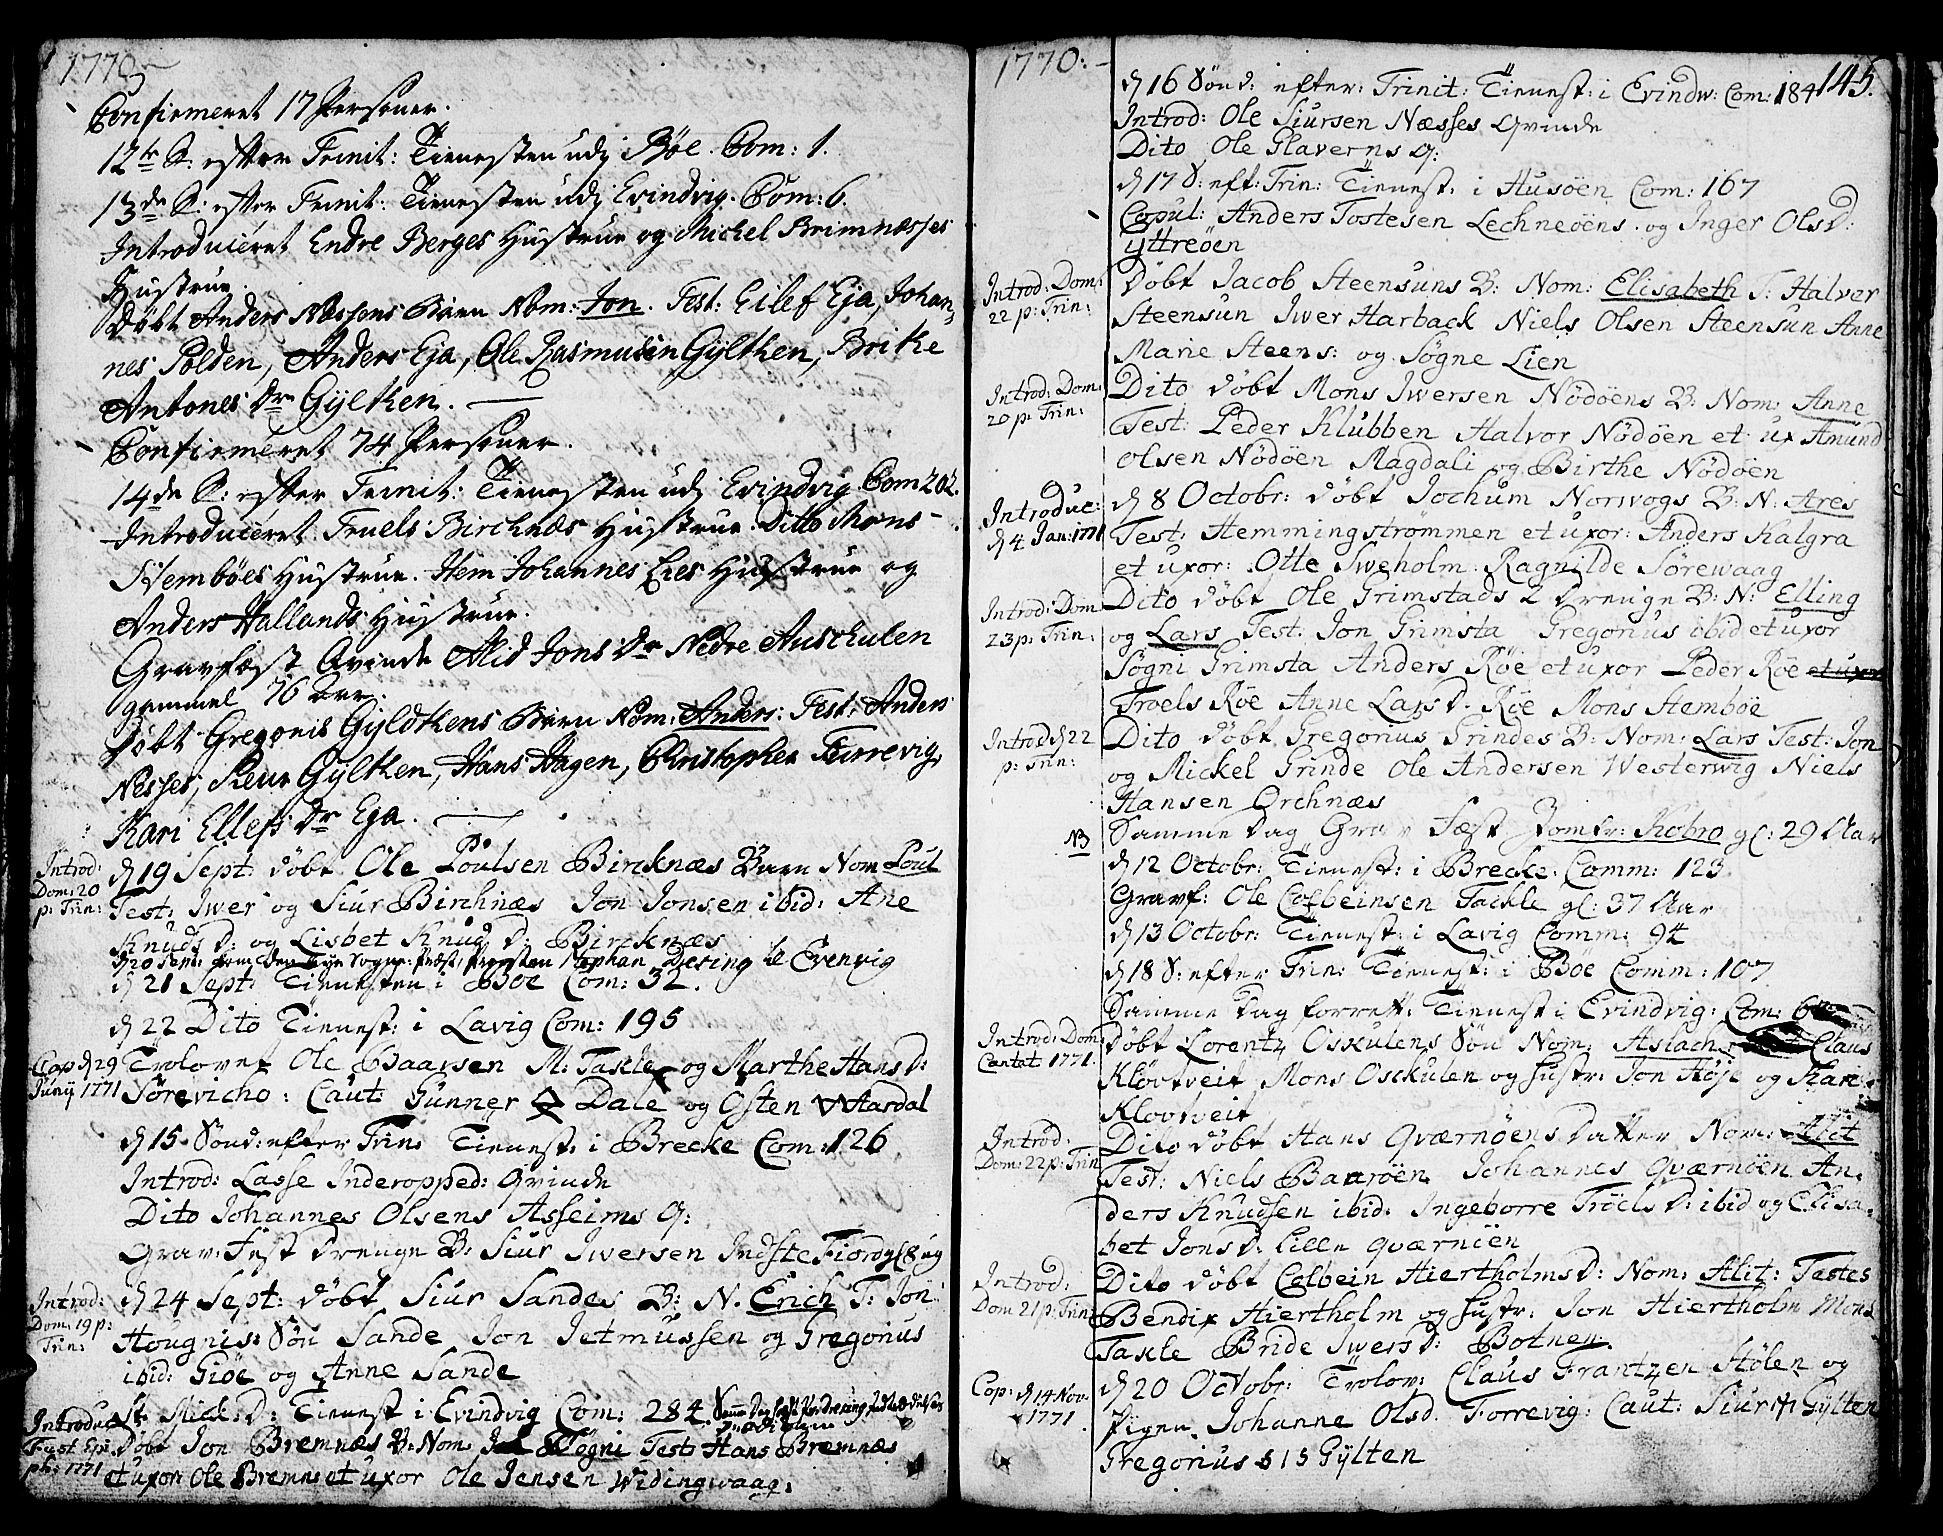 1770
Confirmeret 17 Personer.
12te S: efter Trinit: Tienesten udj Böe. Com: 1.
13de S: efter Trinit: Tienesten udj Evindvig. Com: 6.
Introduceret Endre Berges Hustrue og Michel Brimnæsses
Hustrue.
Döbt Anders Næssens Barn Nom: Jon. Test: Eilef Eja, Johan-
nes Polden, Anders Eja, Ole Rasmusen Gylthen, Brithe
Antones Dr Gylthen.
Confirmeret 74 Personer.
14de S: efter Trinit: Tienesten udj Evindvig Com 202.
Introduceret Truels Birchnæs Hustrue. Ditto Mons
Stemböes Hustrue. Item Johannes Eies Hustrue og
Anders Hallands Hustrue.
Gravfæst Qvinde Alid Jons Dr Nedre Auschulen
gammel 76 Aar.
Döbt Gregoris Gyldthens Barn Nom: Anders: Test: Anders
Nesses, Siur Gylthen, Hans Hagen, Christopher Torrevig,
Kari Ellefs Dr Eja.
Introd:
Dom: 20
p: Trin:
d 19 Sept: döbt Ole Poulsen Bircknæs Barn Nom Poul
Test: Iwer og Siur Birchnæs Jon Jonsen ibid: Ane
Knuds D: og Lisbet Knud D: Bircknæs
d 20 Sept: kom den Nye Sogne: Præst, Provsten Stephan Diering til Evenvig
d 21 Sept: Tienesten i Böe Com: 32.
d 22 Dito Tienest: i Lavig Com: 195
Cop d 29
Junij 1771
Trolovet Ole Baarsen M: Takle og Marthe Hans D:
Sörevicho: Caut: Gunner Dale og Östen Waasdal
d 15 Sönd: efter Trin: Tienest: i Brecke Com: 126
Introd: Lasse Inderopped: Qvinde
Dito Johannes Olsens Asseims Q:
Grav: Fest Drenge B: Siur Iwersen Indste Fiord gl 8 ug
Introd:
Dom: 19 p:
Trin:
d 24 Sept: döbt Siur Sandes B: N. Erich T: Jon
Hougnis: Sön Sande Jon Jetmussen og Gregorius
ibid: Giöe og Anne Sande
Introduc
Fest Epi
ph: 1771
St Mich: D: Tienest i Evindvig Com: 284.
döbt Jon Bremnæs B: Nom: Sögni Test: Hans Bremnæs
et uxor: Ole Bremnes et uxor Ole Jensen Widingwaag:
1770:
145.
d 16 Sönd: efter: Trinit: Tienest: i Evindw: Com: 184
Introd: Ole Siursen Næsses Qvinde
Dito Ole Glaverns Q:
d 17 S: eft: Trin: Tienest: i Husöen Com: 167
Copul: Anders Tostesen Lechneöens. og Inger Ols D:
Yttreöen
Introd: Dom:
22 p: Trin:
Döbt Jacob Steensuns B: Nom: Elisabeth T: Halver
Steensun Iwer Harback Niels Olsen Steensun Anne
Marie Steens: og Sögne Lien
Introd: Dom:
20 p: Trin:
Dito döbt Mons Iwersen Nödöens B: Nom: Anne
Test: Peder Klubben Halvor Nödöen et ux Amund
Olsen Nödöen Magdali og Birthe Nödöen
Introduc:
d 4 Jan: 1771
d 8 Octobr: döbt Jochum Norwogs B: N: Ares
Test: Hemmingströmmen et uxor: Anders Kalgra
et uxor: Otte Sweholm Ragnilde Sörewaag
Introd: Dom
23 p: Trin:
Dito döbt Ole Grimstads 2 Drenge B: N: Elling
og Lars Test: Jon Grimsta Gregorius ibid et uxor
Sögni Grimsta Anders Röe et uxor Peder Röe et uxor
Troels Röe Anne Lars D. Röe Mons Stemböe
Introd d 22
p: Trin:
Dito döbt Gregorius Grindes B: Nom: Lars Test: Jon
og Mickel Grinde Ole Andersen Westerwig Niels
Hansen Orchnæs
NB
Samme Dag Grav Fæst gl: 29 Aar
d 12 Octobr: Tienest: i Brecke: Comm: 123
Gravf: Ole Colbeinsen Tackle gl: 37 Aar
d 13 Octobr: Tienest: i Lavig Comm: 94
d 18 S: efter Trin: Tienest: i Böe Comm: 107
Samme Dag forrett: Tienest i Evindvig: Com: 6
Introd: Dom
Cantat 1771.
Döbt Lorentz Oskulens Sön Nom: Aslach Claus
Klövtveit Mons Osckulen og Hustr: Jon Höje og Kari
Klovtveit
Introd:
Dom: 22 p: Trin
Dito döbt Hans Qværnöens Datter Nom: Alit
Test: Niels Baaröen Johannes Qværnöen An-
ders Knudsen ibid. Ingeborre Tröels D: ibid og Elisa-
bet Jons D: Lille Qværnöen
Introd:
Dom 21 p: Trin:
Dito döbt Colbein Hiertholms D: Nom: Alit: Testes
Bendix Hiertholm og Hustr: Jon Hiertholm Mons
Takle Bride Iwers D: Botnen.
Cop: d 14 Nov.
1771
d 20 Octobr: Trolov: Claus Frantzen Stölen og
Pigen Johanne Olsd. Torrevig: Caut: Siur Gylten
Gregorius Gylten